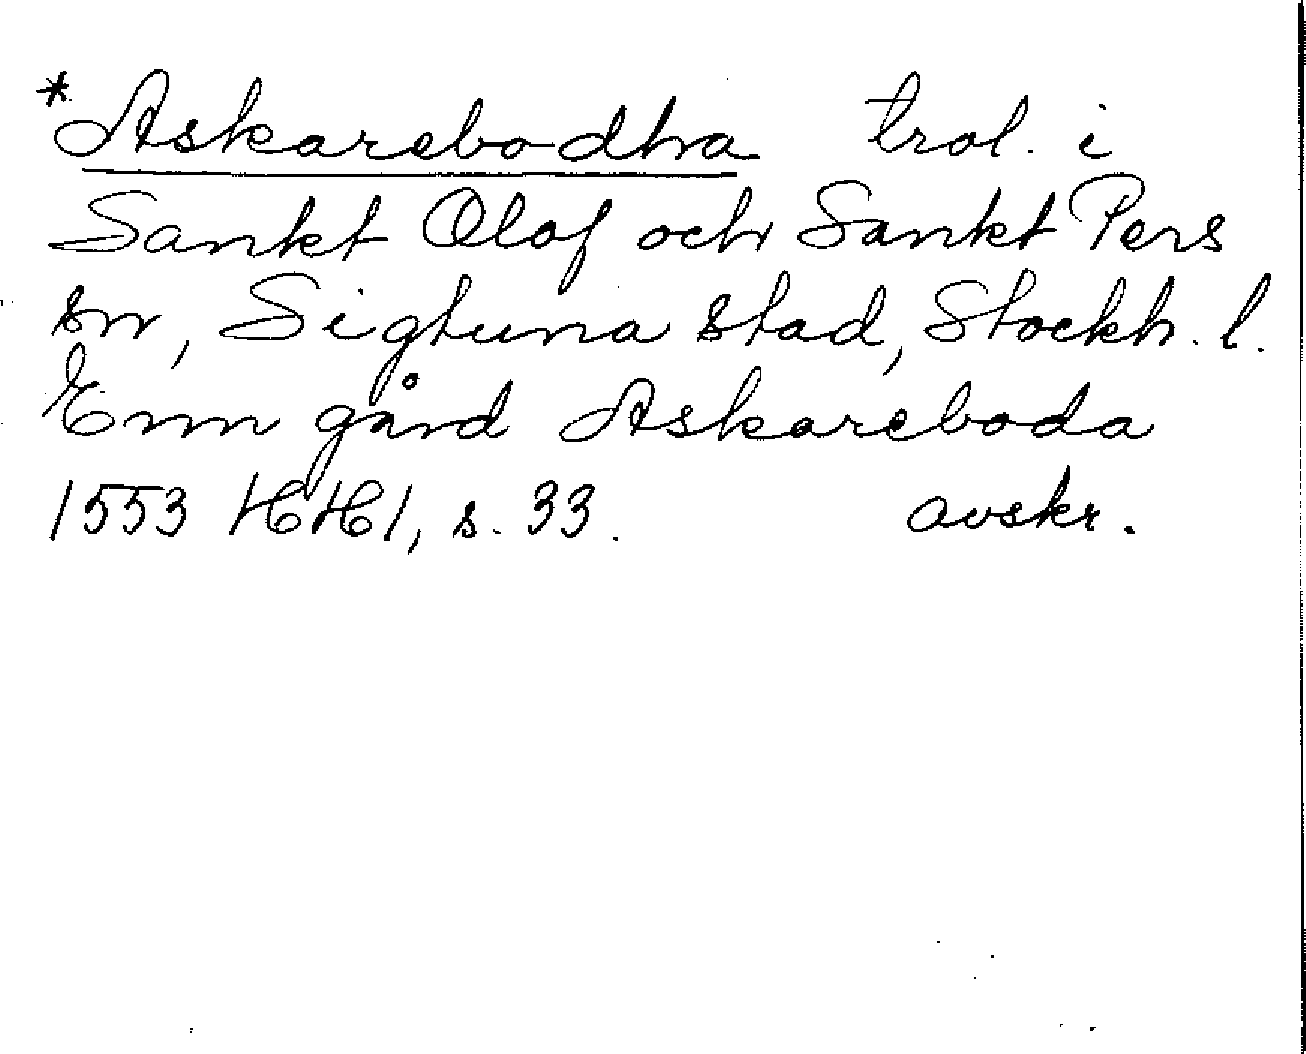 *Askarebodha trol. i
Sankt Olof och Sankt Pers
sn, Sigtuna stad, Stockh. l.
Enn gård Askareboda
1553 HH1, s. 33. avskr.